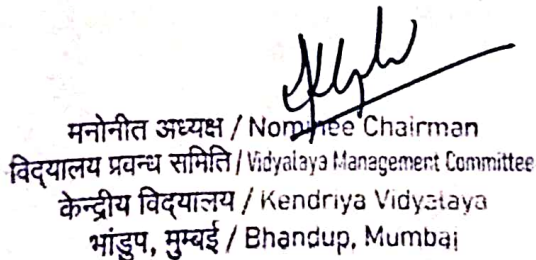 मनोनीत अध्यक्ष / Nominee Chairman
विद्यालय प्रबन्ध समिति / Vidyalaya Management Committee
केन्द्रीय विद्यालय / Kendriya Vidyalaya
भांडुप, मुम्बई / Bhandup, Mumbai